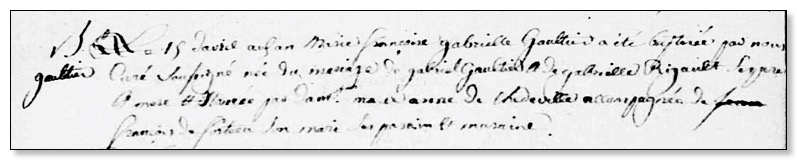 B Le 15 d'avril au san Marie françoise gabrielle Gaultier a été baptisée par nous
gaultier Curé soussigné née du mariage de gabriel Gaultier & de gabrielle Rigault. Le pere
& mere & par dam. marie anne de accompagnée de
françois de son mari les parain & marraine